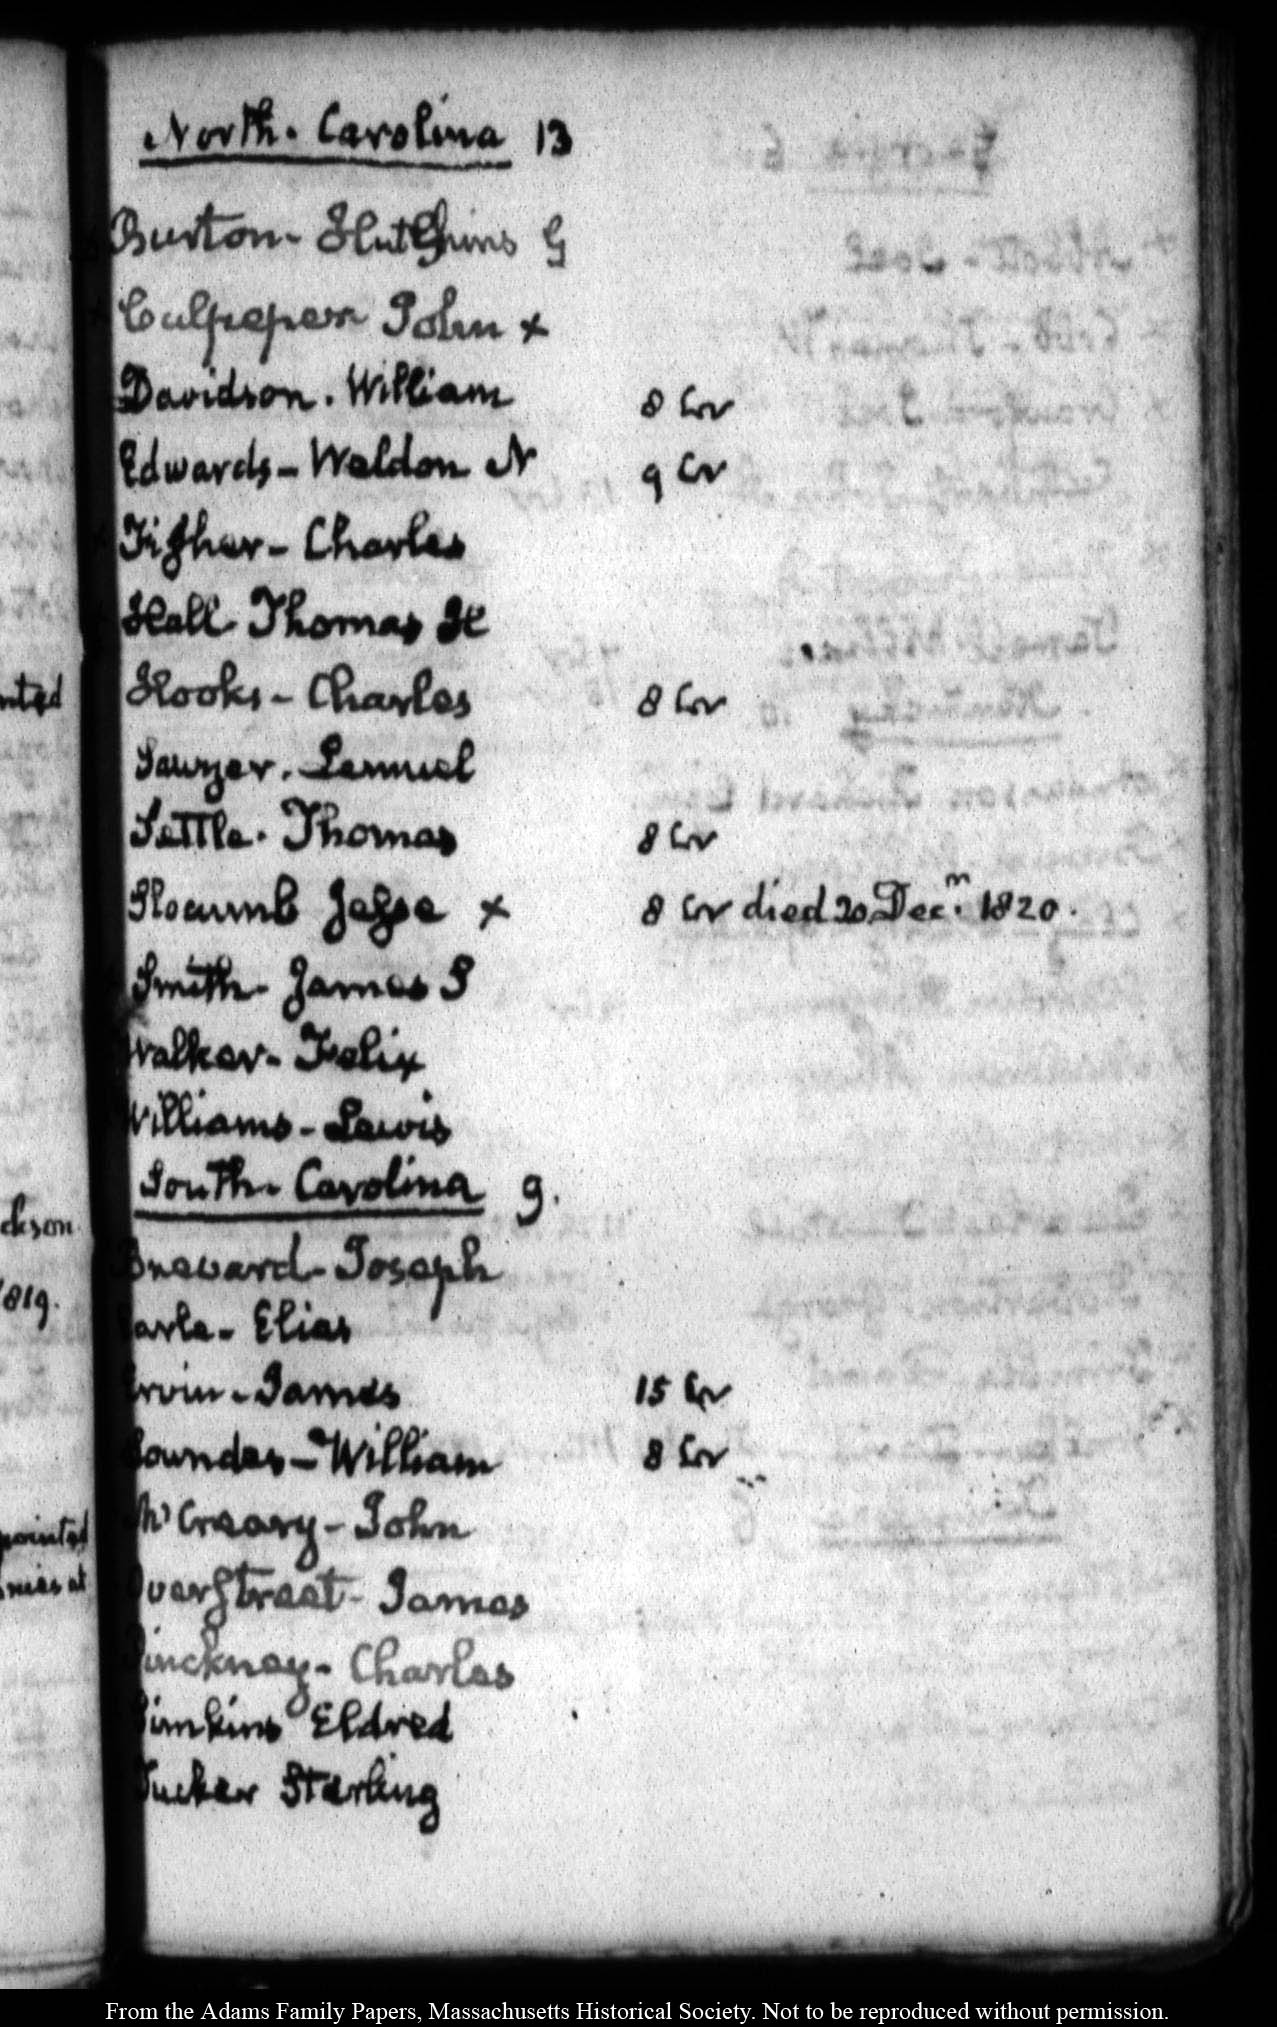 North-Carolina 13
Burton- Hutchins G
Culpeper John x
Davidson. William 8 Cr
Edwards- Weldon N 9 Cr
Fisher- Charles
Hall Thomas H
Hooks- Charles 8 Cr
Sawyer. Lemuel
Settle. Thomas 8 Cr
Slocumb Jesse x 8 Cr died 20 Decr. 1820.
Smith- James S
Walker- Felix
Williams- Lewis
South-Carolina 9.
Brevard- Joseph
Earle- Elias
Ervin- James 15 Cr
Lowndes- William 8 Cr
McCreary- John
Overstreet- James
Pinckney- Charles
Simkins Eldred
Tucker Starling
nted
ckson
1819.
pointed
From the Adams Family Papers, Massachusetts Historical Society. Not to be reproduced without permission.